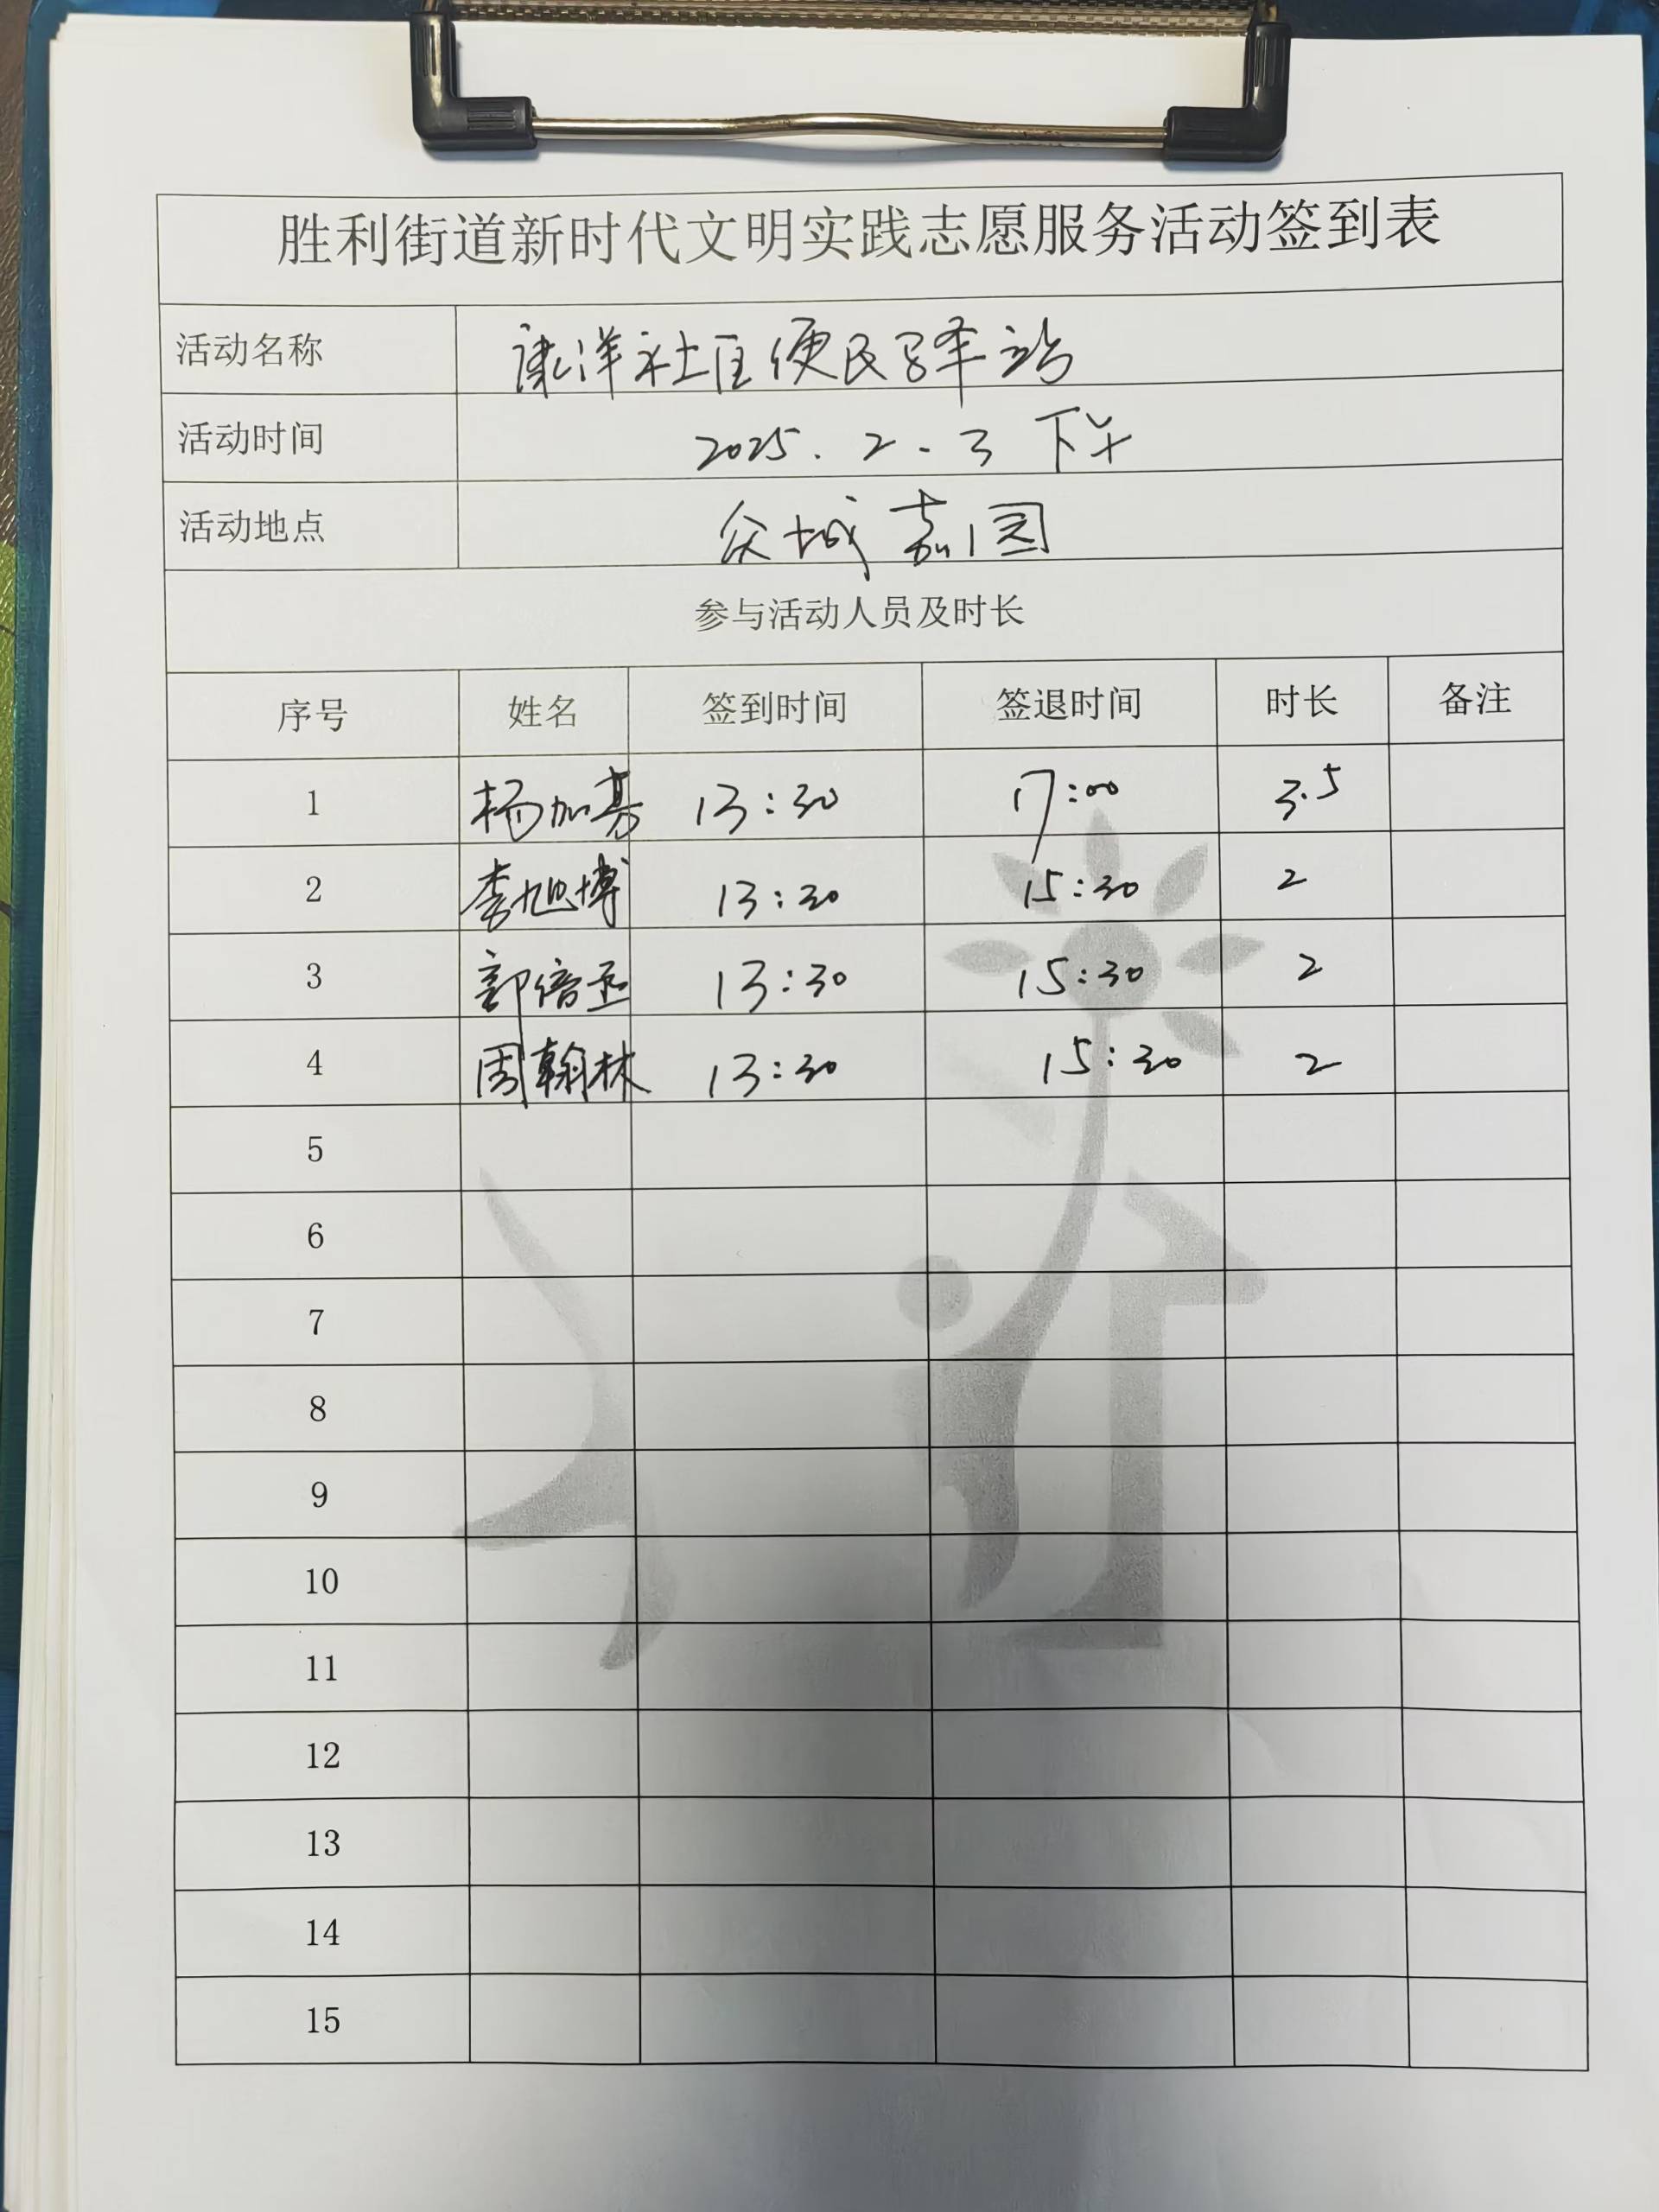 胜利街道新时代文明实践志愿服务活动签到表
活动名称 康洋社区便民驿站
活动时间 2025.2.3 下午
活动地点 众城嘉园
参与活动人员及时长
序号 姓名 签到时间 签退时间 时长 备注
1 杨加 13:30 17:00 3.5
2 李旭博 13:30 15:30 2
3 郭倍丞 13:30 15:30 2
4 周翰林 13:30 15:30 2
5
6
7
8
9
10
11
12
13
14
15